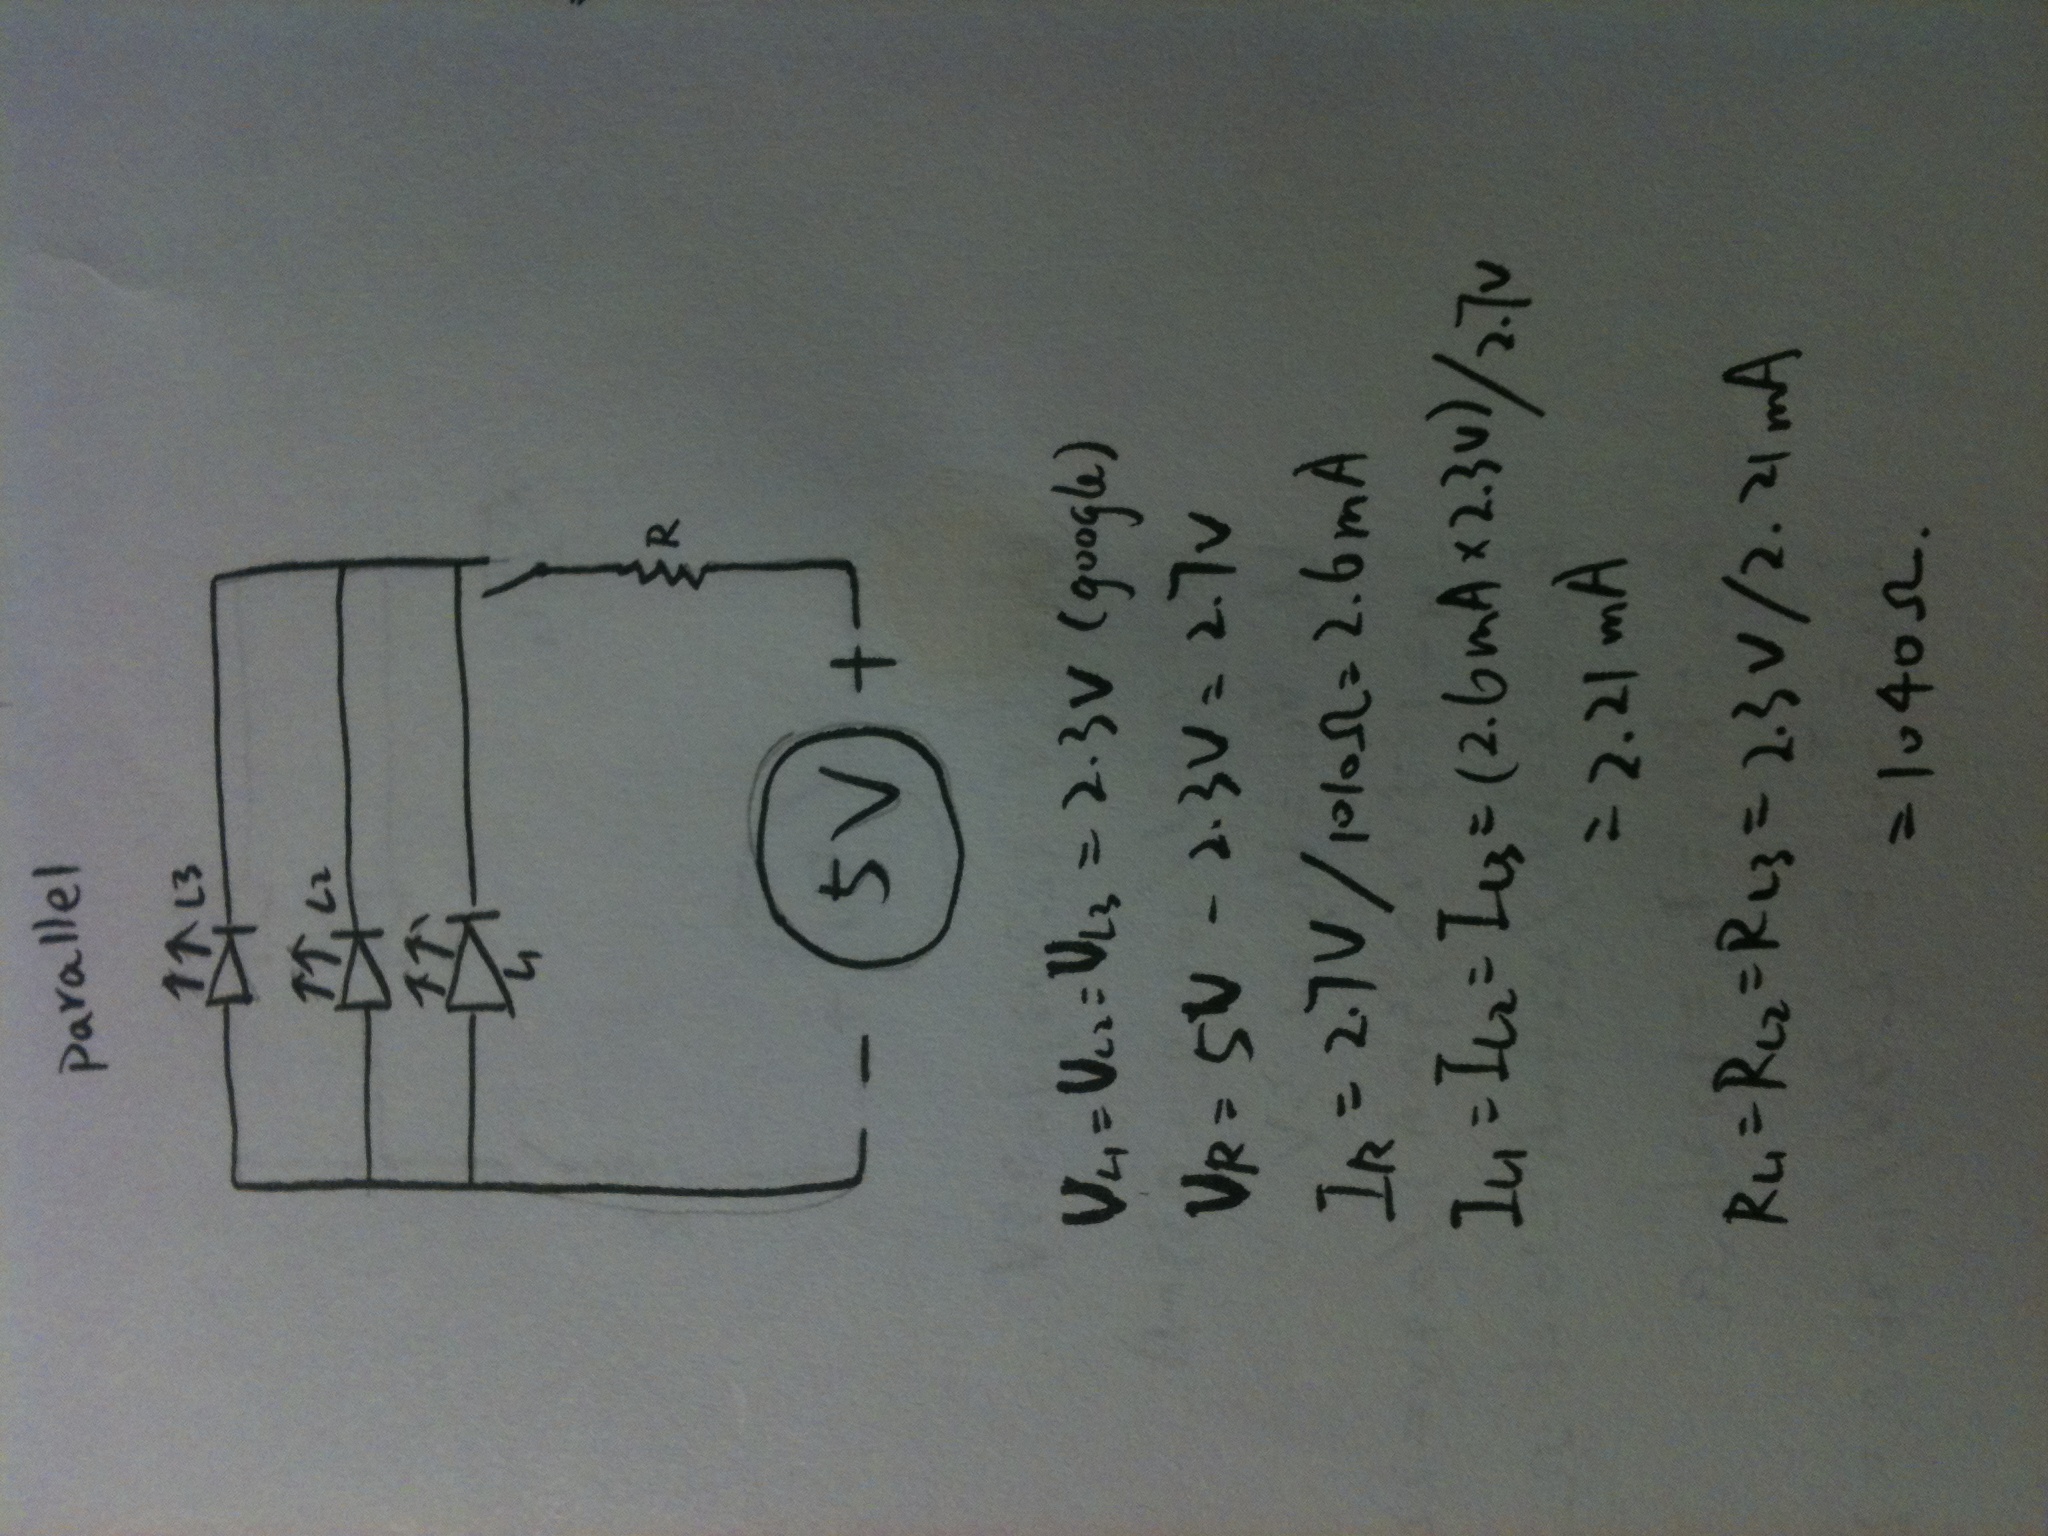 parallel
L3
L2
L1
R
- 5V +
VL1 = VL2 = VL3 = 2.3V (google)
VR = 5V - 2.3V = 2.7V
IR = 2.7V / 1010Ω = 2.6mA
IL1 = IL2 = IL3 = (2.6mA × 2.3V) / 2.7V
= 2.21 mA
RL1 = RL2 = RL3 = 2.3V / 2.21mA
= 1040Ω.